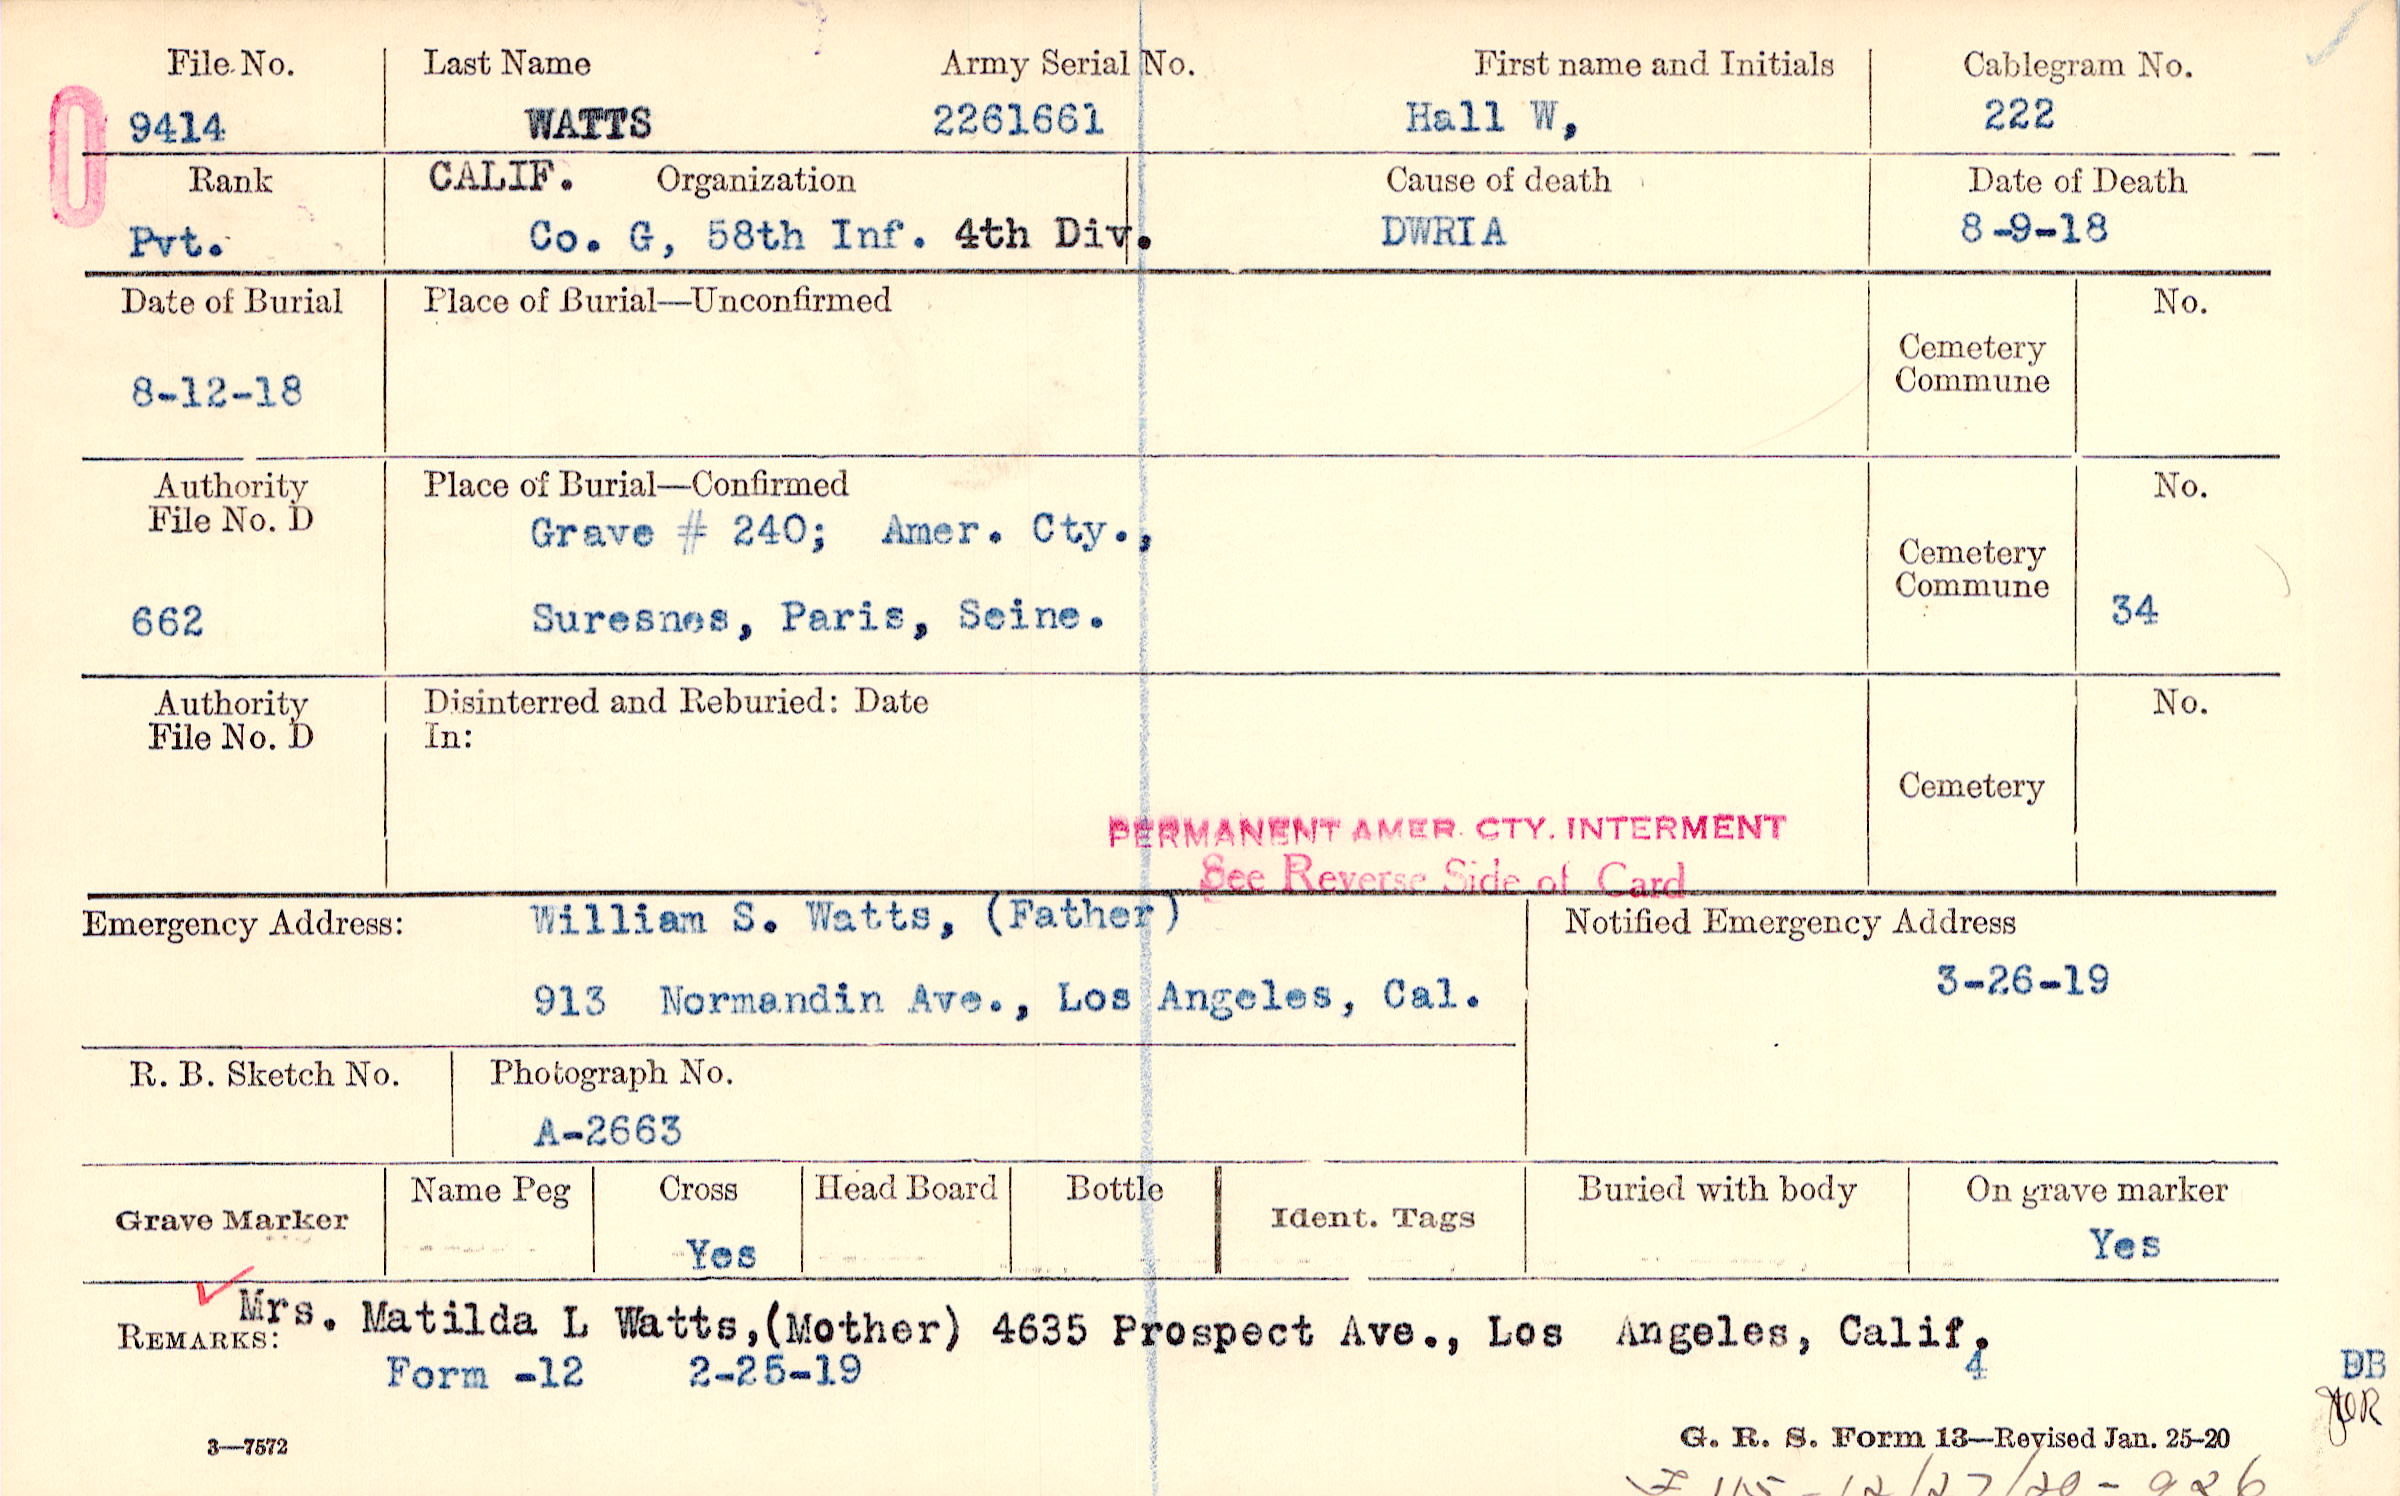 File No. Last Name Army Serial No. First name and Initials Cablegram No.
9414 WATTS 2261661 Hall W, 222
Rank CALIF. Organization Cause of death Date of Death
Pvt. Co. G, 58th Inf. 4th Div. DWRIA 8-9-18
Date of Burial Place of Burial—Unconfirmed No.
Cemetery
Commune
8-12-18
Authority Place of Burial—Confirmed No.
File No. D
Grave # 240; Amer. Cty.,
Cemetery
Commune
662 Suresnes, Paris, Seine. 34
Authority Disinterred and Reburied: Date No.
File No. D In:
Cemetery
PERMANENT AMER. CTY. INTERMENT
See Reverse Side of Card
Emergency Address: William S. Watts, (Father) Notified Emergency Address
913 Normandin Ave., Los Angeles, Cal. 3-26-19
R. B. Sketch No. Photograph No.
A-2663
Grave Marker Name Peg Cross Head Board Bottle Ident. Tags Buried with body On grave marker
Yes Yes
Mrs. Matilda L Watts,(Mother) 4635 Prospect Ave., Los Angeles, Calif.
REMARKS:
Form -12 2-25-19 4 DB
3—7572 G. R. S. Form 13—Revised Jan. 25-20